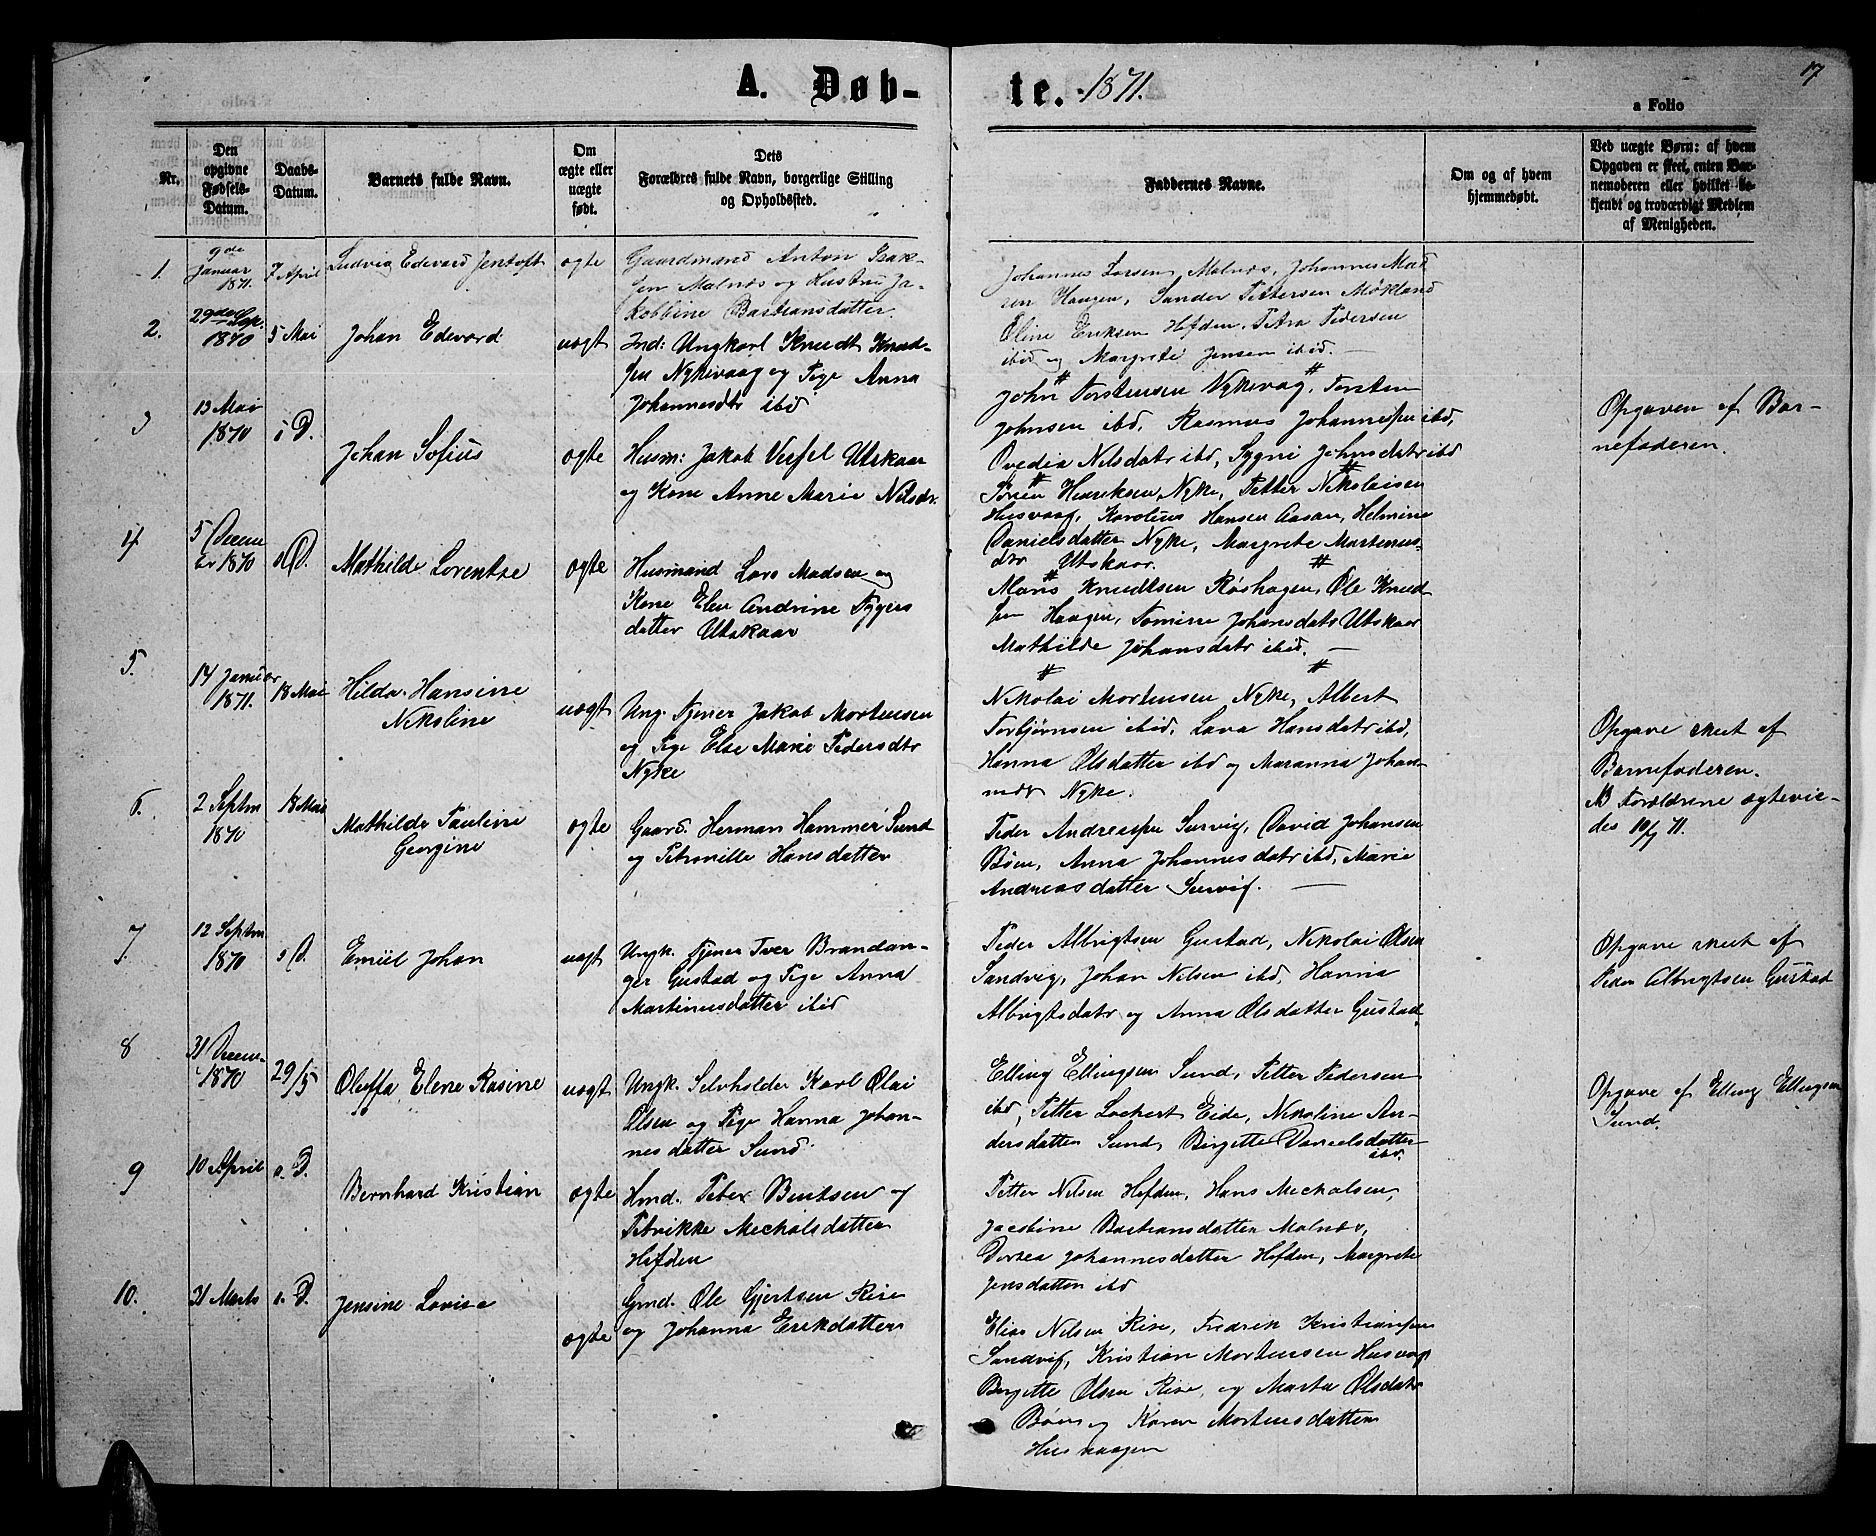 A. Døb-
te. 1871.
17
a Folio
Nr.
Den opgivne Fødsels-Datum.
Daabs-Datum.
Barnets fulde Navn.
Om ægte eller uægte født.
Dets Forældres fulde Navn, borgerlige Stilling og Opholdssted.
Faddernes Navne.
Om og af hvem hjemmedøbt.
Ved uægte Børn: af hvem
Opgaven er skeet, enten Bar-
nemoderen eller hvilket be-
kjendt og troværdigt Medlem
af Menigheden.
1.
9de Januar 1871.
7 April
Ludvig Edevard Jentoft
ægte
Gaardmand Anton Isak-
sen Malnæs og Hustru Ja-
kobbine Bastiansdatter.
Johannes Larsen Malnæs, Johannes Mad
sen Haugen, Sander Pettersen Mökland
Oline Eriksen Hefden, Petra Pedersen
ibid og Margrete Jensen ibid. —
2.
29de Sep. 1870
5 Mai
Johan Edevard
uægt
Ind: Ungkarl Knudt Knud-
sen Nykevaag og Pige Anna
Johannesdtr ibid
John Torstensen Nykevag, Torsten
Johnsen ibd, Rasmus Johannessen ibd,
Ovedia Nilsdatr ibd, Sygni Johnsdatr ibd
Opgaven af Bar-
nefaderen.
3
13 Mai 1870
s D.
Johan Sofius
ægte
Husm: Jakob Vessel Utskaar
og Kone Anne Marie Nilsdr.
Sören Henriksen Nyke, Petter Nikolaisen
Husvaag, Karolius Hansen Aasan, Helmine
Danielsdatter Nyke, Margrete Martinus-
dtr Utskaar.
4
5 Decem br 1870
s D.
Mathilde Lorentse
ægte
Husmand Lars Madsen og
Kone Elen Andrine Sygers
datter Utskaar
Mons Knudtsen Röshagen, Ole Knud
sen Haagen, Tomine Johansdatr Utskaar
Mathilde Johansdatr ibid. —
5.
14 Januar 1871.
18 Mai
Hilda Hansine
Nikoline
uægt
Ung. Tjener Jakob Mortensen
og Pige Else Marie Pedersdtr
Nyke
Nikolai Mortensen Nyke, Albert
Torbjørnsen ibid, Lava Hansdatr ibd,
Hanna Olsdatter ibd og Maranna Johan
Nyke.
Opgave skeet af
Barnefaderen.
NB Forældrene ægtevie-
des 10/7 71.
6.
2 Septm 1870
18 Mai
Mathilde Pauline
Georgine
ægte
Gaard. Herman Hammer Sund
og Petronille Hansdatter
Peder Andreassen Survig, David Johansen
Böen, Anna Johannesdatr ibd, Marie
Andreasdatter Survig. —
7.
12 Septm 1870
s D.
Emiil Johan
uægt
Ungk. Tjener Iver Brandan-
ger Gustad og Pige Anna
Martinusdatter ibid
Peder Albrigtsen Gustad, Nikolai Olsen
Sandvig, Johan Nilsen ibd, Hanna
Albrigtsdatr og Anna Olsdatter Gustad.
Opgave skeet af
Peder Albrigtsen Gustad
8
31 Decem- 1870
29/5
Oluffa Elene Rasine
uægt
Ungk. Selvholder Karl Olai
Olsen og Pige Hanna Johan-
nesdatter Sund.
Elling Ellingsen Sund, Petter Pedersen
ibd, Petter Lockert Eide, Nikoline An-
dersdatter Sund, Birgitte Danielsdatter
ibd.
Opgave af Elling Ellingsen
Sund.
9
10 April
s. D.
Bernhard Kristian
ægte
Hmd. Peter Bentsen og
Petrikke Mechalsdatter
Hefden
Petter Nilsen Hefden, Hans Mechalsen,
Jacobine Bastiansdatter Malnæs,
Dorsea Johannesdatter Hefden, Margrete
Jensdatter ibd
10.
31 Marts
s. D.
Jensine Lovise
ægte
Gmd. Ole Gjertsen Rise
og Johanna Erikdatter
Elias Nilsen Rise, Fredrik Kristiansen
Sandvig, Kristian Mortensen Husvag
Birgitte Olsen Rise, og Marta Olsdatr
Böen og Karen Mortensdatter
Husvaagen